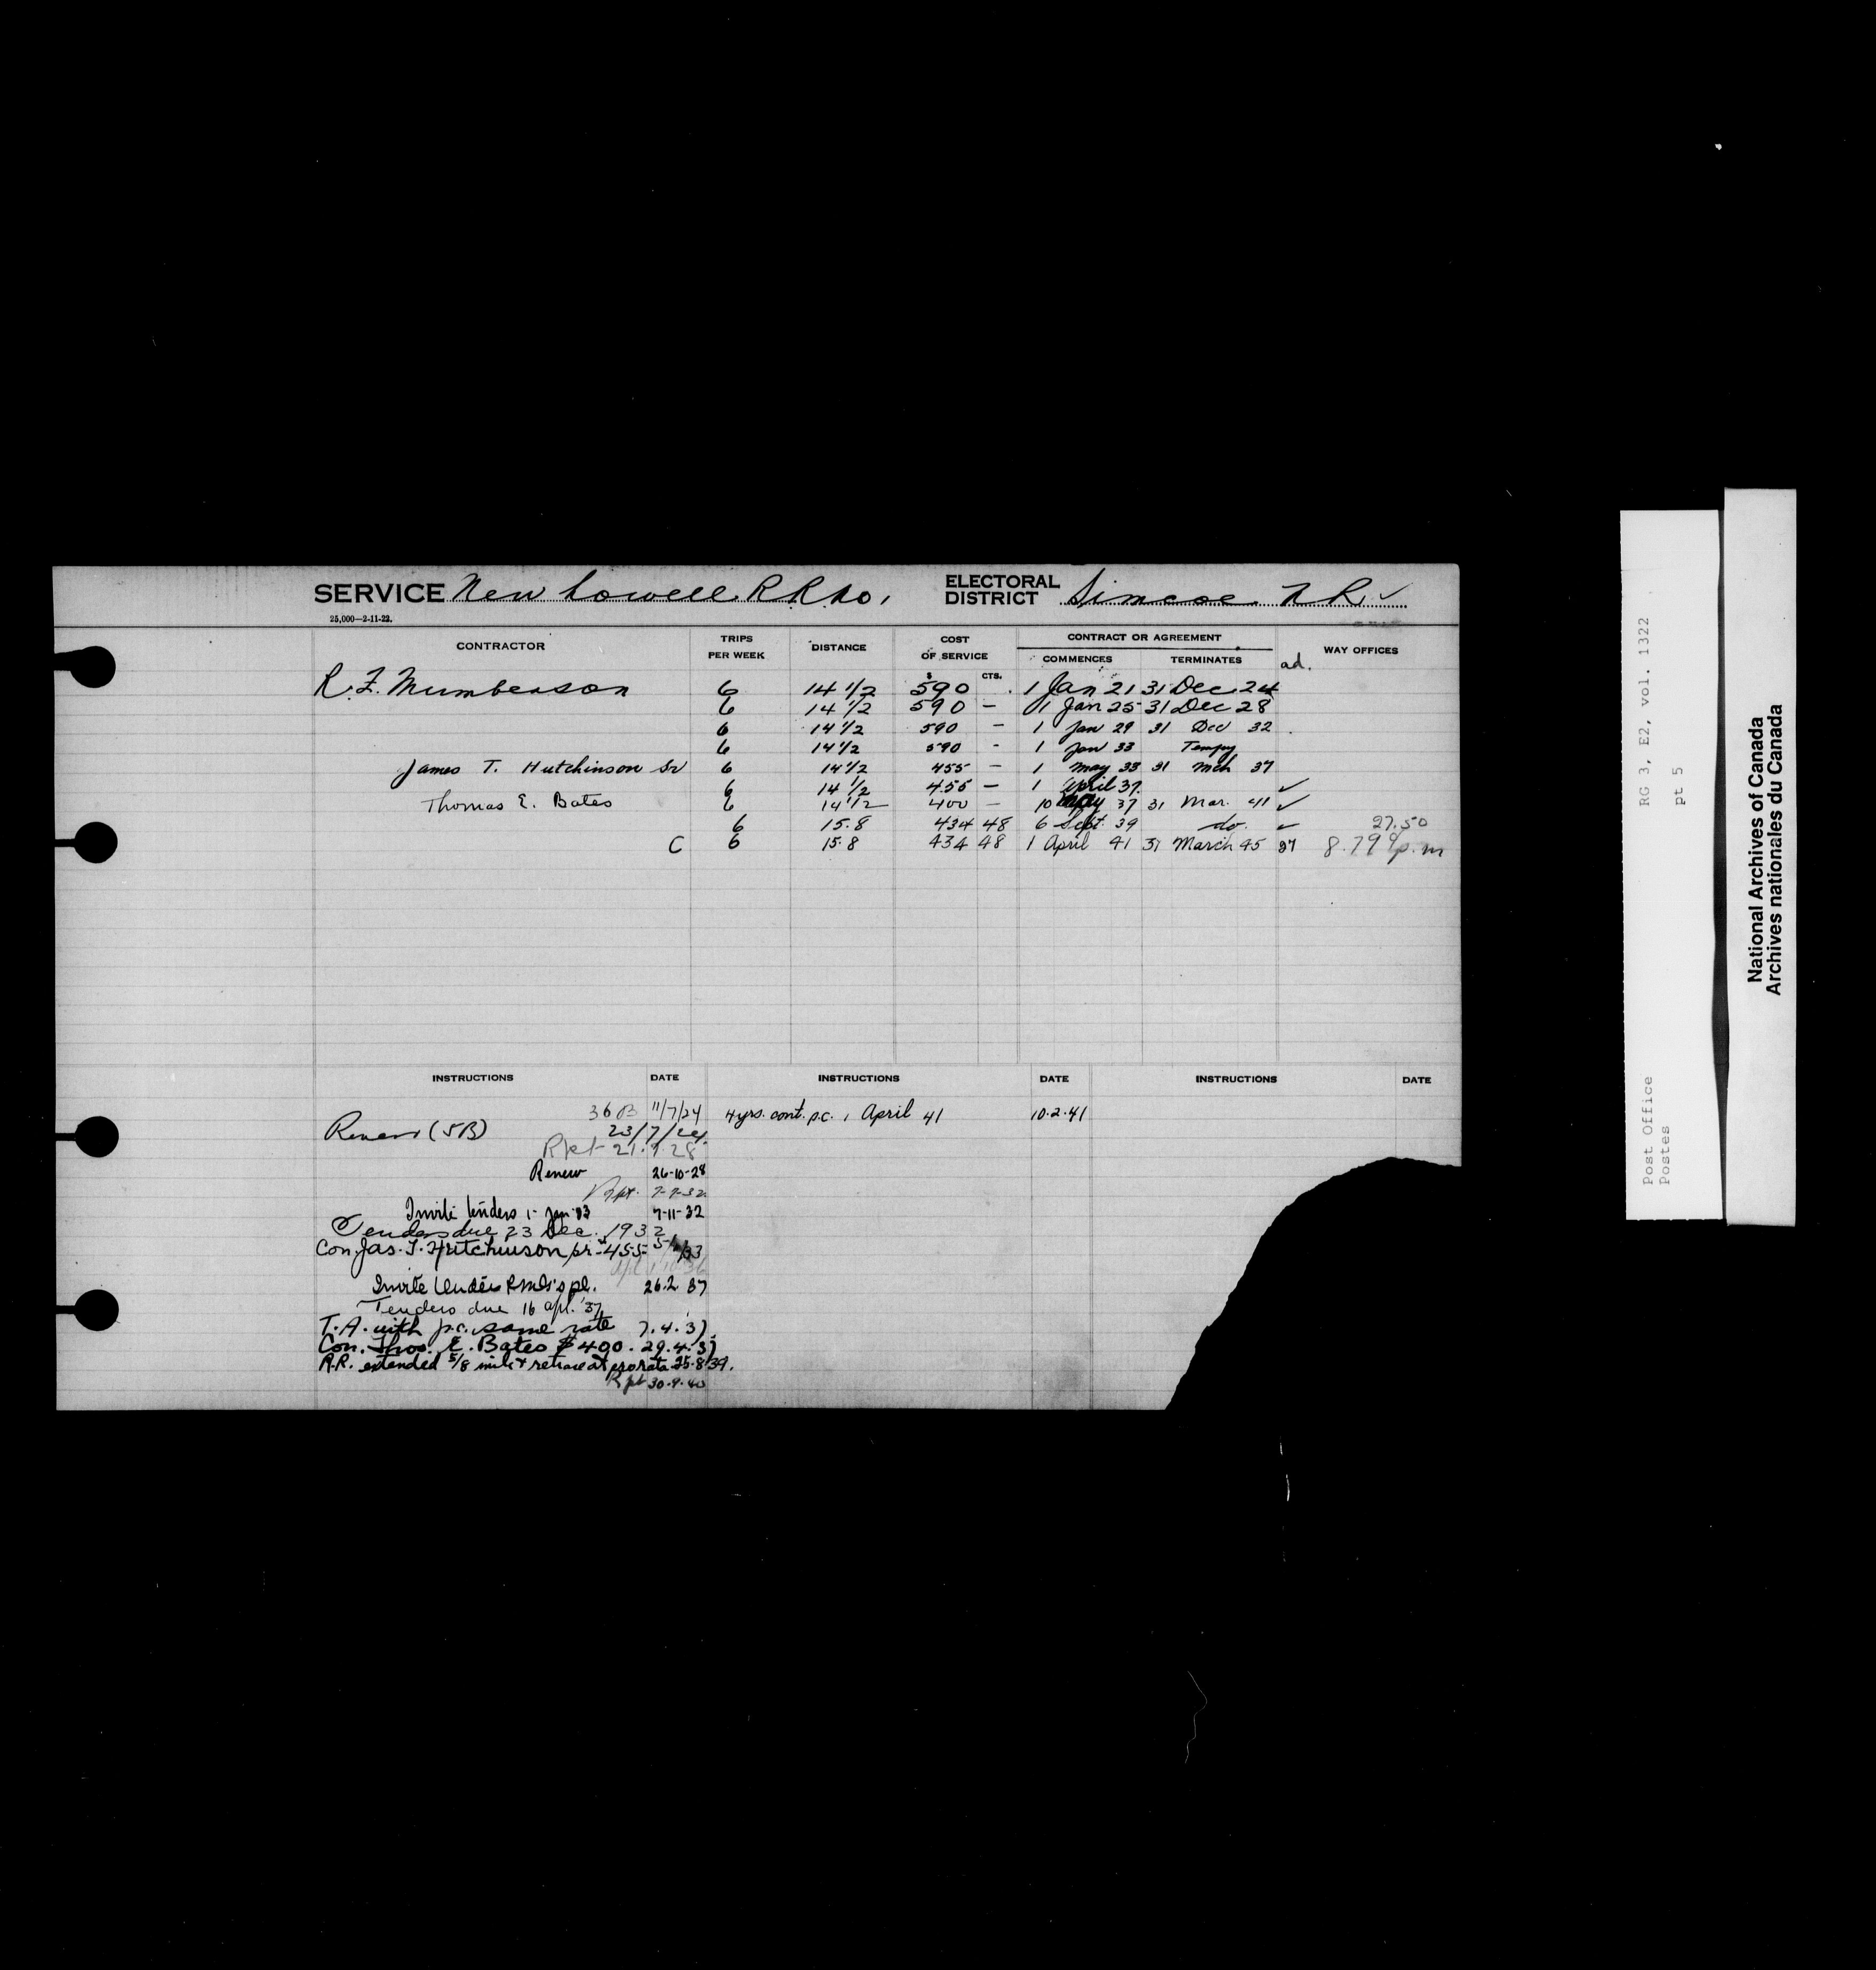 SERVICE New Lowell R.R. No. 1 ELECTORAL DISTRICT Simcoe N R ✓
25,000—2-11-22.
CONTRACTOR TRIPS PER WEEK DISTANCE COST OF SERVICE CONTRACT OR AGREEMENT WAY OFFICES
$ CTS. COMMENCES TERMINATES ad.
R. F. Mumberson 6 14 1/2 590 1 Jan 21 31 Dec 24
6 14 1/2 590 — 1 Jan 25 31 Dec 28
6 14 1/2 590 — 1 Jan 29 31 Dec 32
6 14 1/2 590 - 1 Jan 33 Tempy
James T. Hutchinson Sr 6 14 1/2 455 — 1 May 33 31 Mch 37
6 14 1/2 455 — 1 April 37. ✓
Thomas E. Bates 6 14 1/2 400 — 10 May 37 31 Mar. 41 ✓
6 15.8 434 48 6 Sept. 39 do. ✓ 27.50
C 6 15.8 434 48 1 April 41 31 March 45 8.79 p.m
INSTRUCTIONS DATE INSTRUCTIONS DATE INSTRUCTIONS DATE
36 B 11/7/24 4 yrs. cont. p.c. 1 April 41 10.2.41
Renew (5B) 23/7/24.
Rpt 21.9.28
Renew 26-10-28
Rpt. 7-9-32
Invite tenders 1- Jan 33 7-11-32
Tenders due 23 Dec. 1932
Con. Jas. T. Hutchinson sr. 455
Invite tenders 26.2 37
Tenders due 16 apl. '37
T.A. with p.c. same rate 7.4.37
Con. Thos. E. Bates $400. 29.4.37
R.R. extended 5/8 mile & retrace at pro rata 25.8.39.
Rpt 30.9.40
RG 3, E2, vol. 1322
pt 5
Post Office
Postes
National Archives of Canada
Archives nationales du Canada